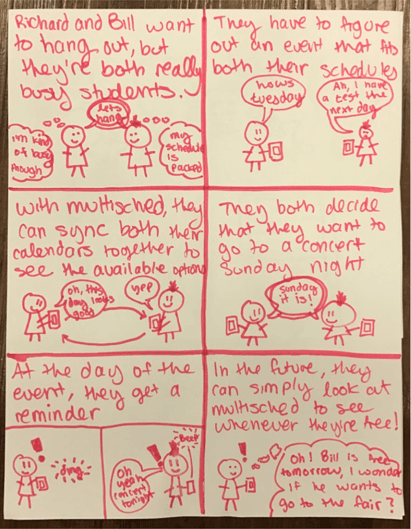 Richard and Bill want
to hang out, but
they're both really
busy students.
lets
hang
i'm kind
of busy
though
my
schedule
is
packed
They have to figure
out an event that fits
both their schedules
hows
tuesday
Ah, I have
a test the
next day
With multisched, they
can sync both their
calendars together to
see the available options
oh, this
day looks
good
yep
They both decide
that they want to
go to a concert
Sunday night
Sunday
it is!
At the day of the
event, they get a
reminder
!
ding
!
Beep
Oh
yeah,
concert
tonight
In the future, they
can simply look at
multisched to see
whenever they're free!
!
Oh! Bill is free
tomorrow, I wonder
if he wants to
go to the fair?